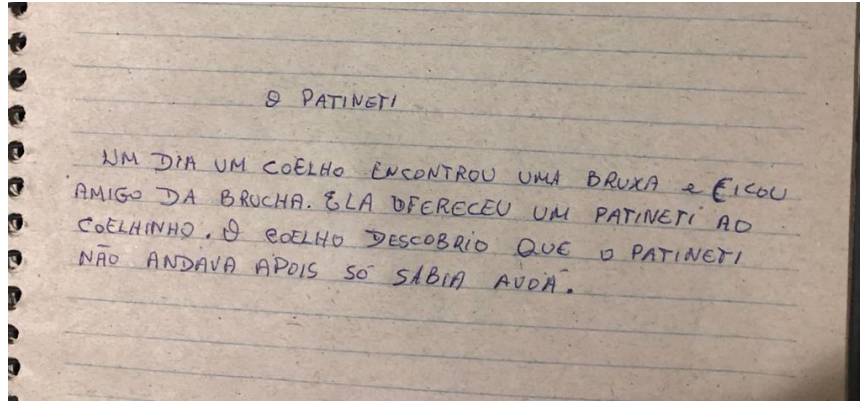 O PATINETI
UM DIA UM COELHO ENCONTROU UMA BRUXA e FICOU
AMIGO DA BRUCHA. ELA OFERECEU UM PATINETI AO
COELHINHO. O COELHO DESCOBRIO QUE O PATINETI
NÃO ANDAVA APOIS SÓ SABIA AVOÁ.